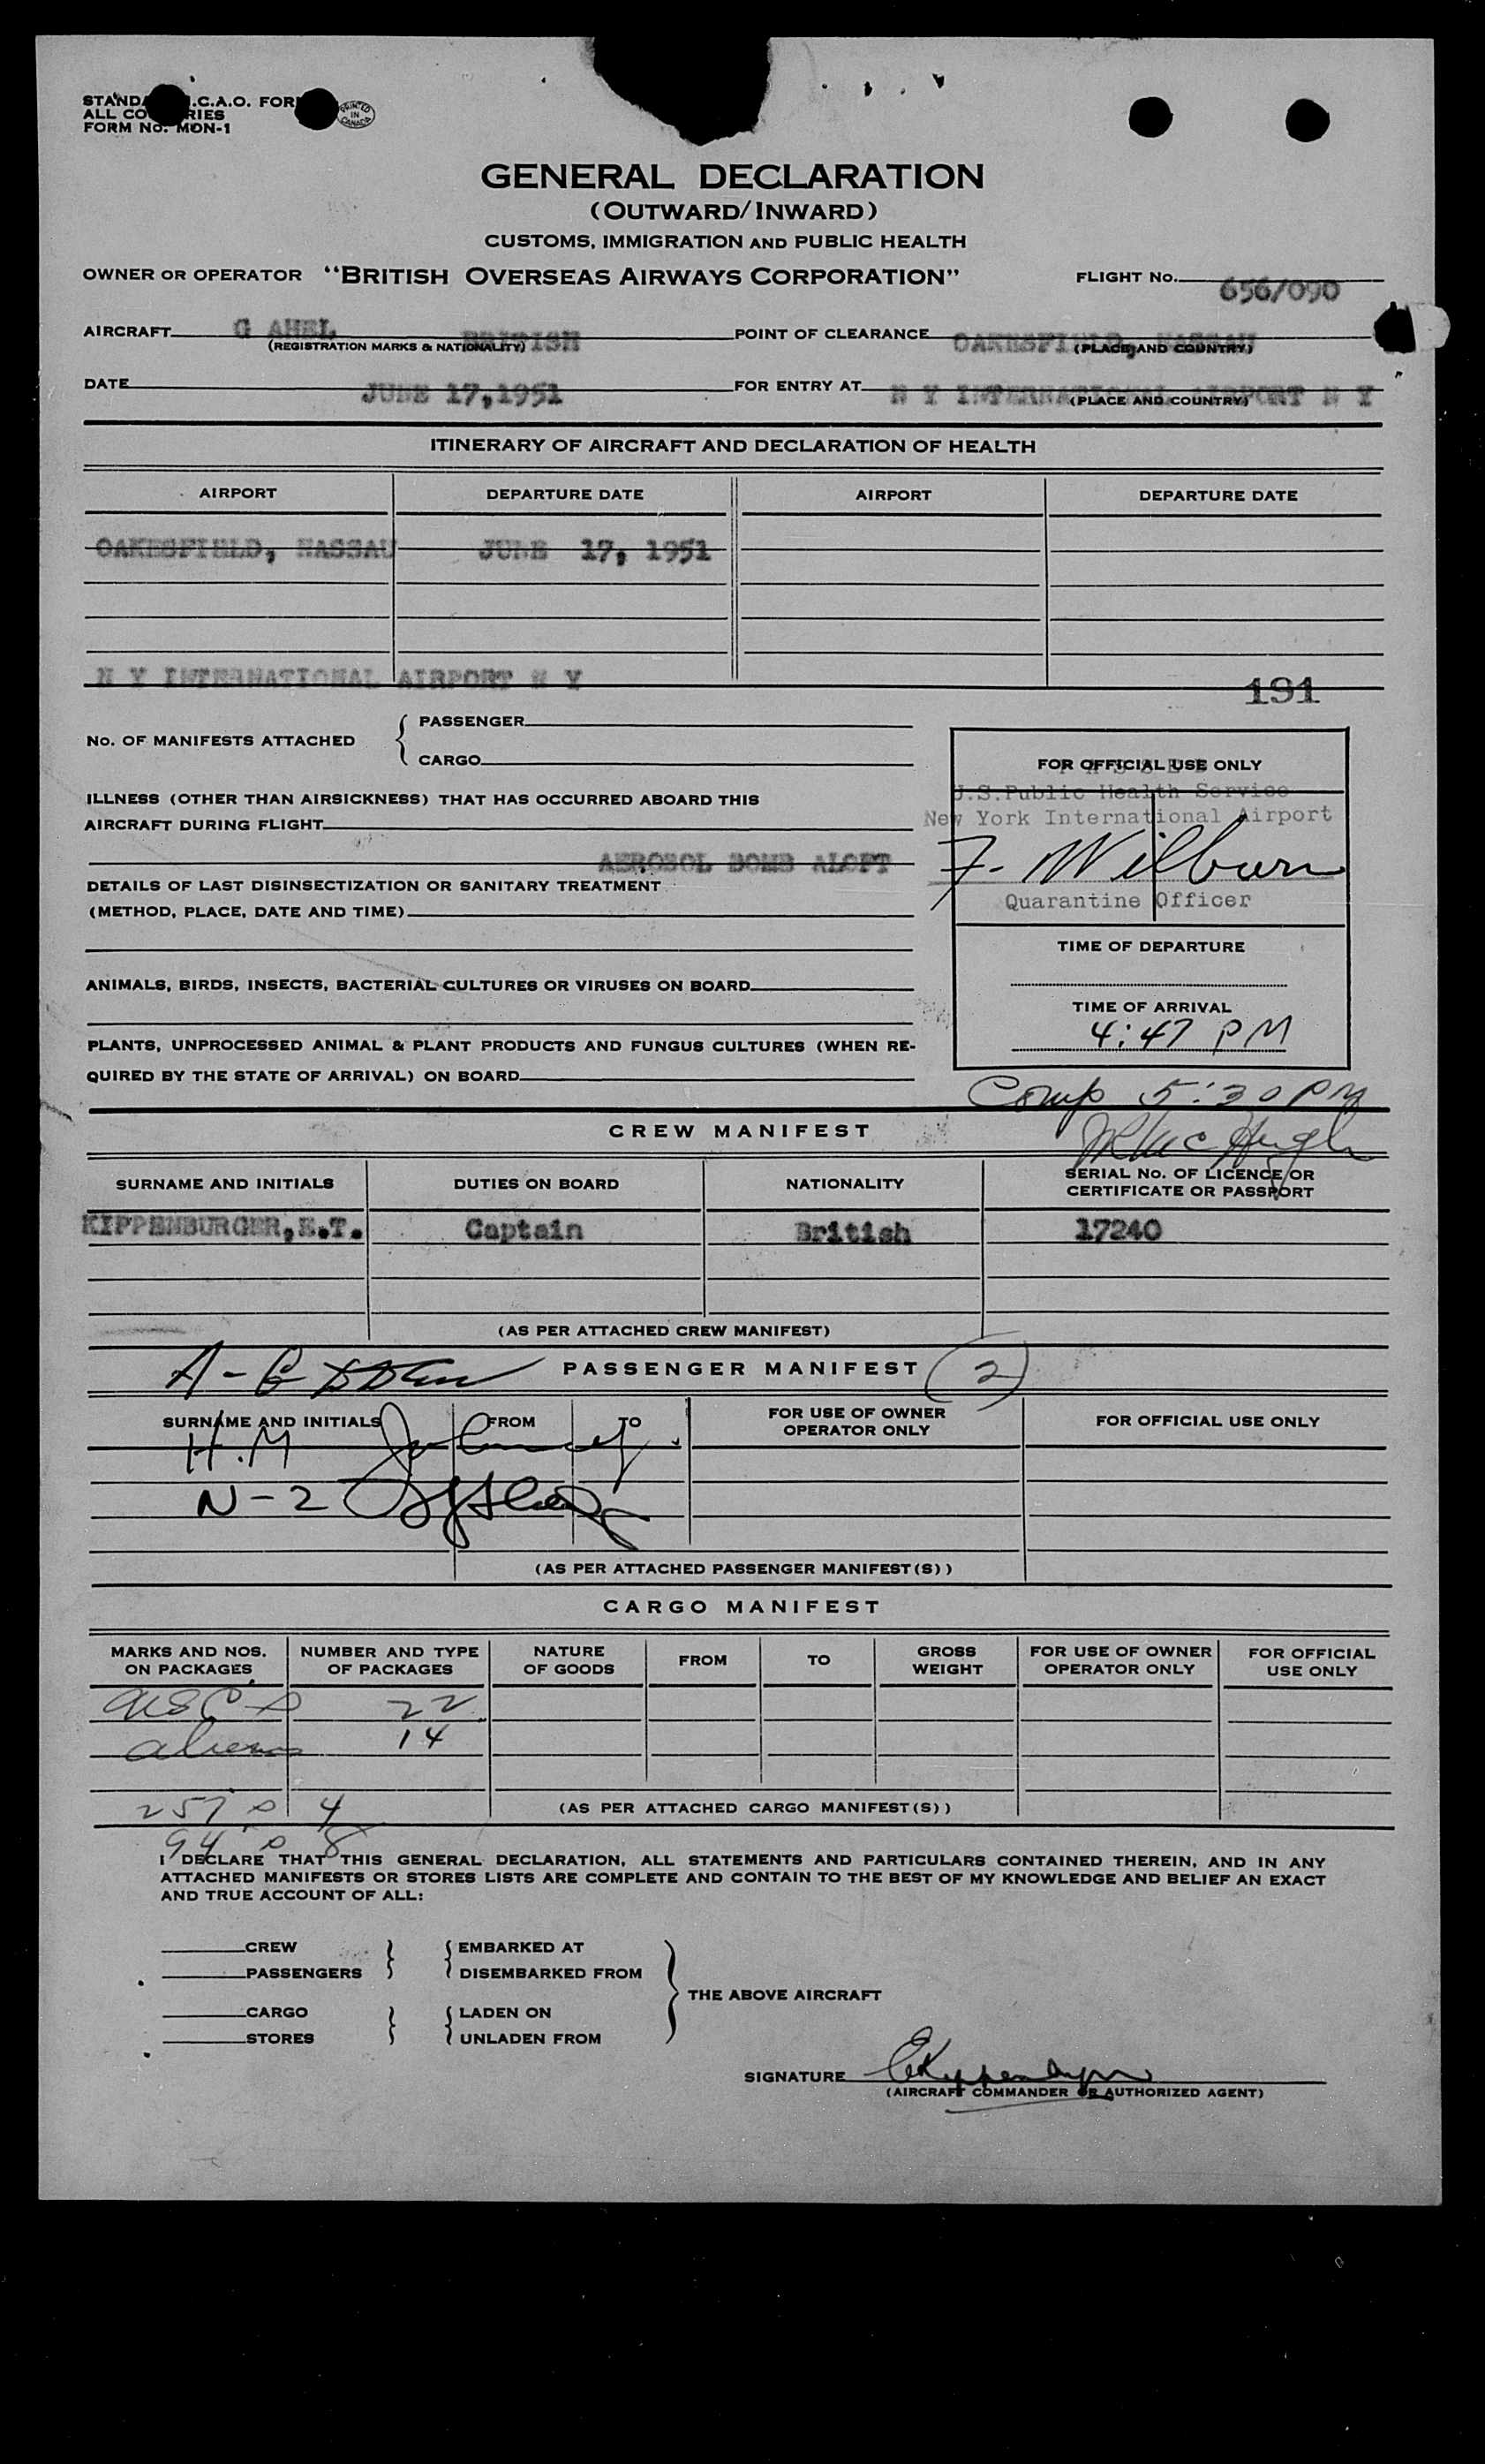 STANDA .C.A.O. FOR
ALL CO RIES
FORM No. MON-1
PRINTED IN CANADA
GENERAL DECLARATION
(OUTWARD/INWARD)
CUSTOMS, IMMIGRATION AND PUBLIC HEALTH
OWNER OR OPERATOR "BRITISH OVERSEAS AIRWAYS CORPORATION" FLIGHT No. 656/090
AIRCRAFT G AHEL BRITISH POINT OF CLEARANCE OAKESFIELD, NASSAU
(REGISTRATION MARKS & NATIONALITY) (PLACE AND COUNTRY)
DATE JUNE 17,1951 FOR ENTRY AT N Y INTERNATIONAL AIRPORT N Y
(PLACE AND COUNTRY)
ITINERARY OF AIRCRAFT AND DECLARATION OF HEALTH
AIRPORT DEPARTURE DATE AIRPORT DEPARTURE DATE
OAKESFIELD, NASSAU JUNE 17, 1951
N Y INTERNATIONAL AIRPORT N Y
191
No. OF MANIFESTS ATTACHED PASSENGER
CARGO
FOR OFFICIAL USE ONLY
U.S.Public Health Service
New York International Airport
F. Wilburn
Quarantine Officer
ILLNESS (OTHER THAN AIRSICKNESS) THAT HAS OCCURRED ABOARD THIS
AIRCRAFT DURING FLIGHT
AEROSOL BOMB ALOFT
DETAILS OF LAST DISINSECTIZATION OR SANITARY TREATMENT
(METHOD, PLACE, DATE AND TIME)
TIME OF DEPARTURE
ANIMALS, BIRDS, INSECTS, BACTERIAL CULTURES OR VIRUSES ON BOARD
TIME OF ARRIVAL
4:47 PM
PLANTS, UNPROCESSED ANIMAL & PLANT PRODUCTS AND FUNGUS CULTURES (WHEN RE-
QUIRED BY THE STATE OF ARRIVAL) ON BOARD
Comp 5:30 PM
CREW MANIFEST
SURNAME AND INITIALS DUTIES ON BOARD NATIONALITY SERIAL No. OF LICENCE OR
CERTIFICATE OR PASSPORT
KIPPENBURGER, E.T. Captain British 17240
(AS PER ATTACHED CREW MANIFEST)
PASSENGER MANIFEST (2)
SURNAME AND INITIALS FROM TO FOR USE OF OWNER
OPERATOR ONLY FOR OFFICIAL USE ONLY
H.M
N-2
(AS PER ATTACHED PASSENGER MANIFEST(S))
CARGO MANIFEST
MARKS AND NOS.
ON PACKAGES NUMBER AND TYPE
OF PACKAGES NATURE
OF GOODS FROM TO GROSS
WEIGHT FOR USE OF OWNER
OPERATOR ONLY FOR OFFICIAL
USE ONLY
USC s 22
aliens 14
257 s 4
(AS PER ATTACHED CARGO MANIFEST(S))
94 s 8
I DECLARE THAT THIS GENERAL DECLARATION, ALL STATEMENTS AND PARTICULARS CONTAINED THEREIN, AND IN ANY
ATTACHED MANIFESTS OR STORES LISTS ARE COMPLETE AND CONTAIN TO THE BEST OF MY KNOWLEDGE AND BELIEF AN EXACT
AND TRUE ACCOUNT OF ALL:
CREW EMBARKED AT
PASSENGERS DISEMBARKED FROM
THE ABOVE AIRCRAFT
CARGO LADEN ON
STORES UNLADEN FROM
SIGNATURE
(AIRCRAFT COMMANDER OR AUTHORIZED AGENT)